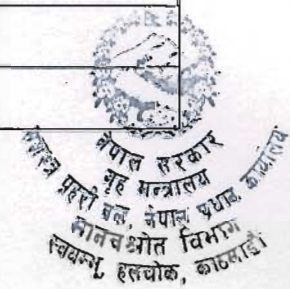 नेपाल सरकार
गृह मन्त्रालय
सशस्त्र प्रहरी बल, नेपाल प्रधान कार्यालय
मानवश्रोत विभाग
स्वयम्भू, हलचोक, काठमाडौं